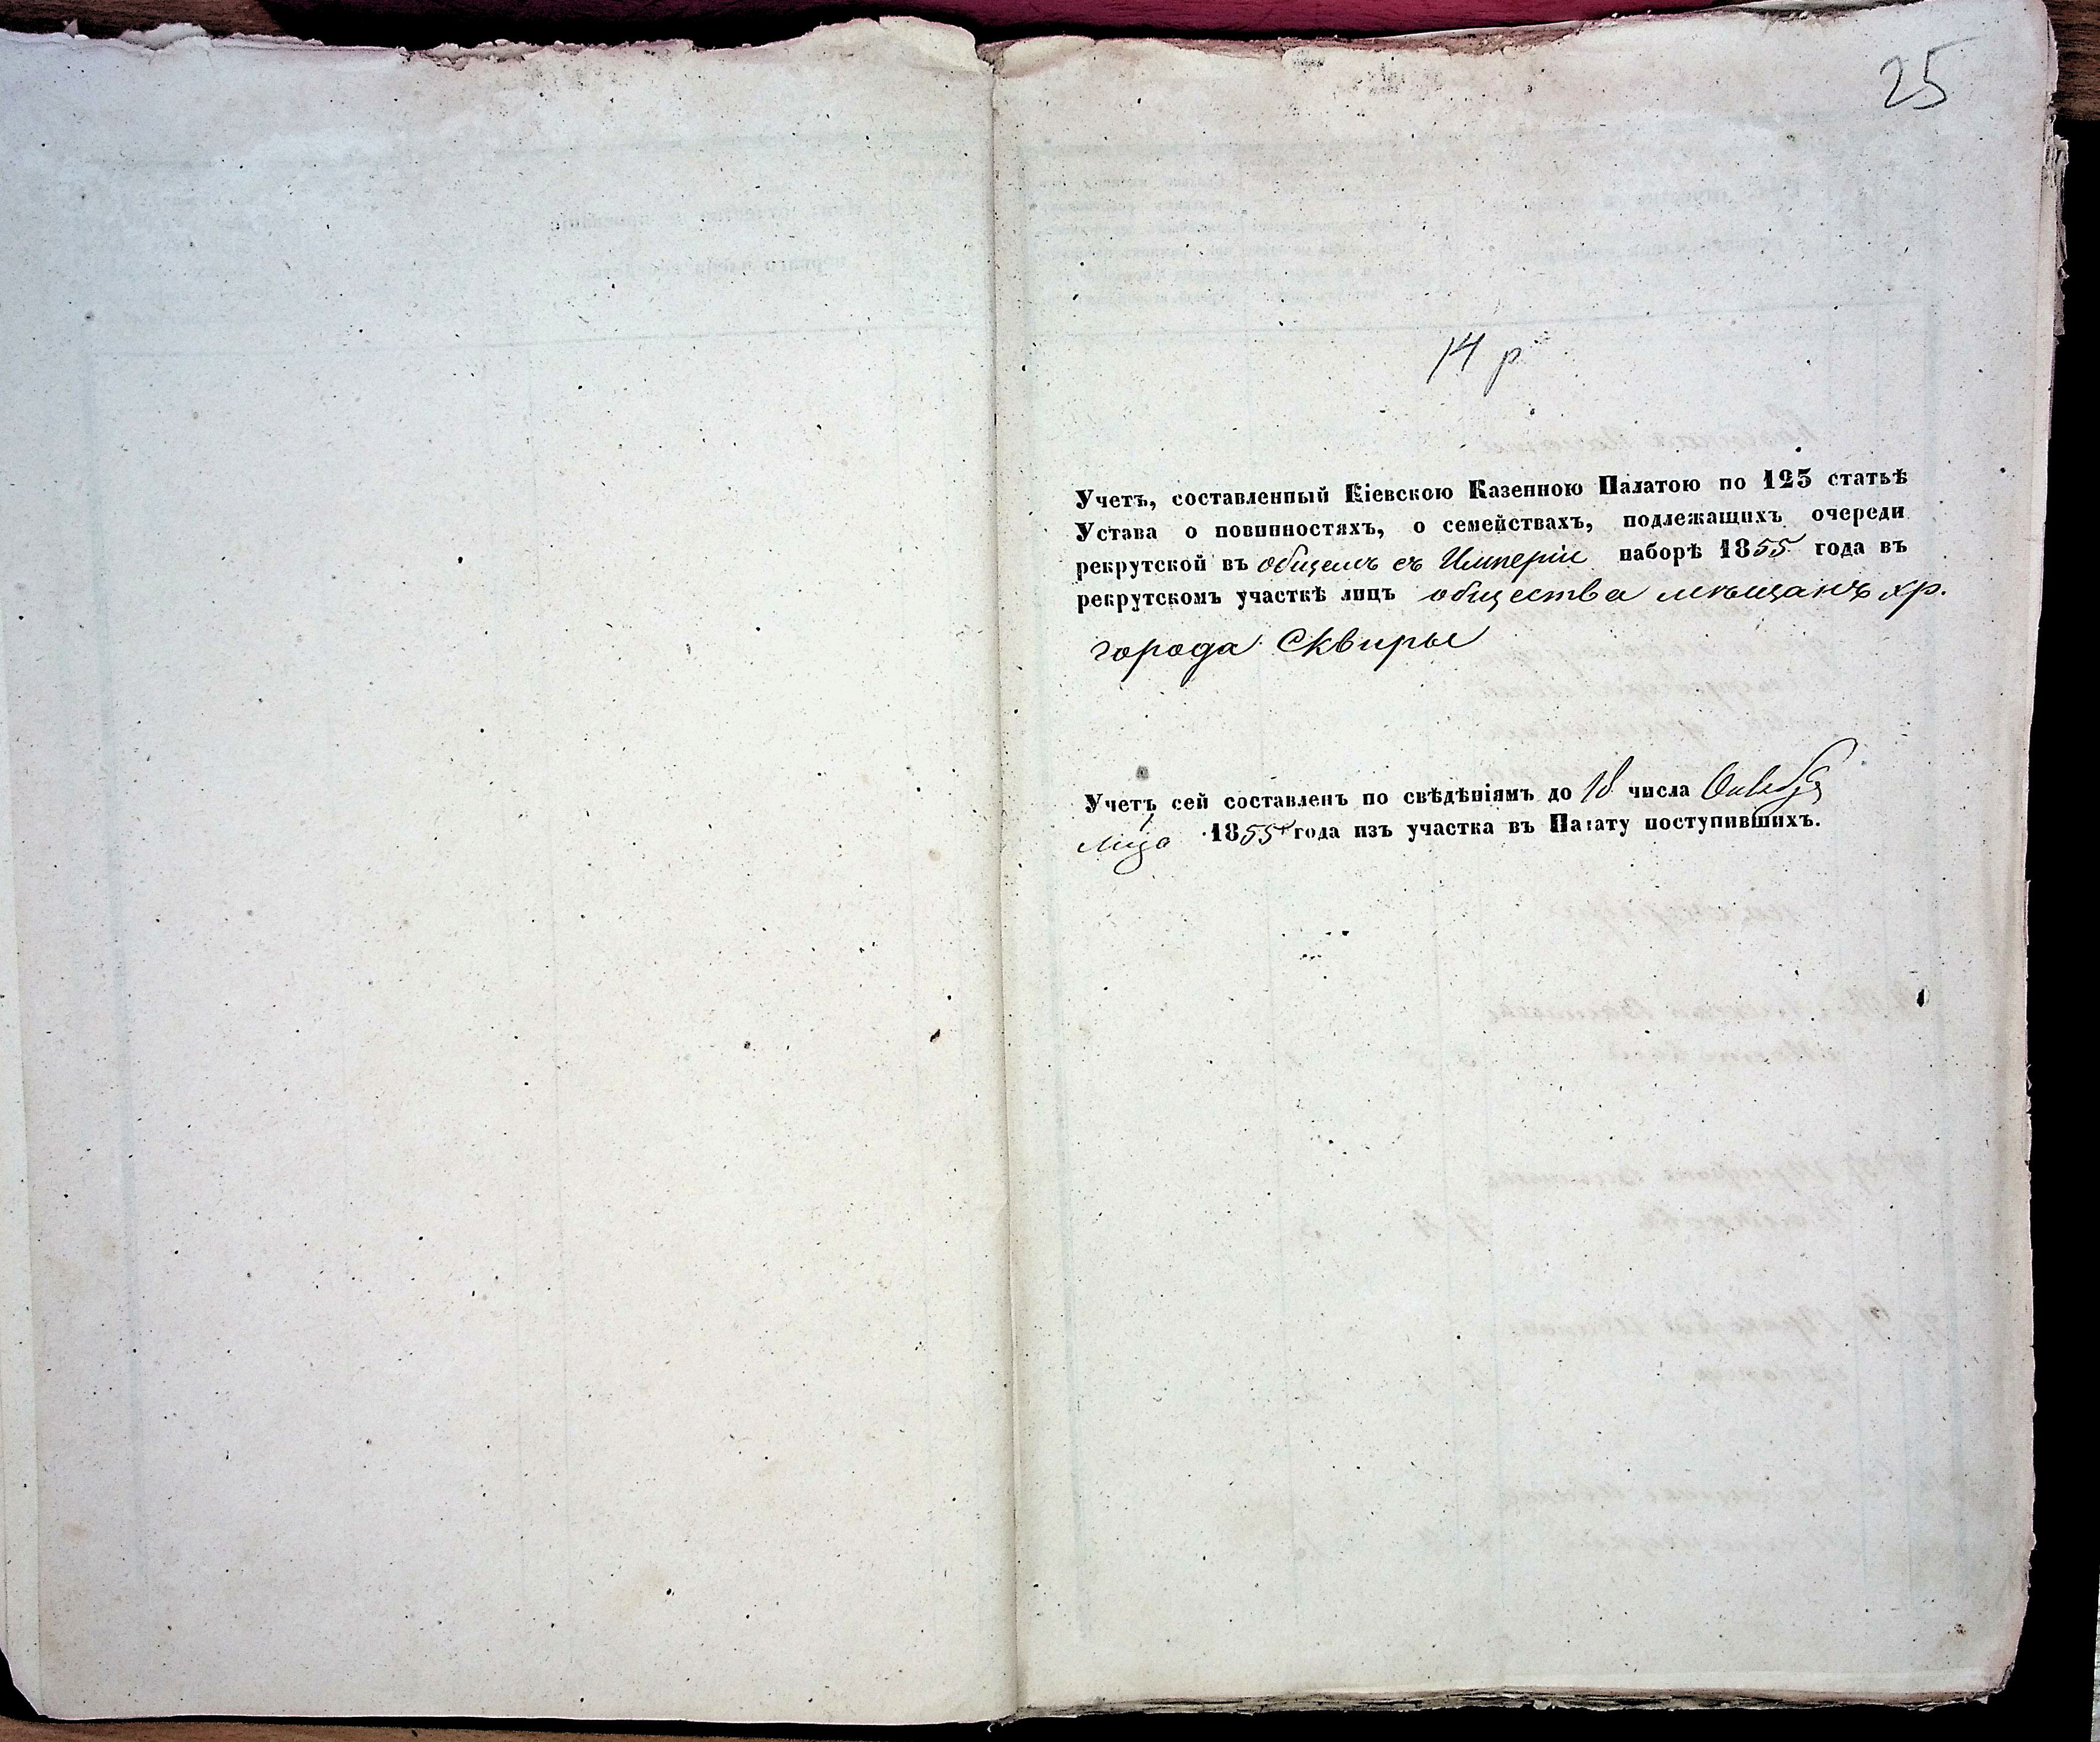 25
14 р
Учетъ, составленный Кіевскою Казенною Палатою по 123 статьѣ
Устава о повинностяхъ, о семействахъ, подлежащихъ очереди
рекрутской въ общемъ съ Имперіи наборѣ 1855 года въ
рекрутскомъ участкѣ лицъ общества мѣщанъ хр.
города Сквиры
Учетъ сей составленъ по свѣдѣніямъ до 18 числа Октября
мца 1855 года изъ участка въ Палату поступившихъ.